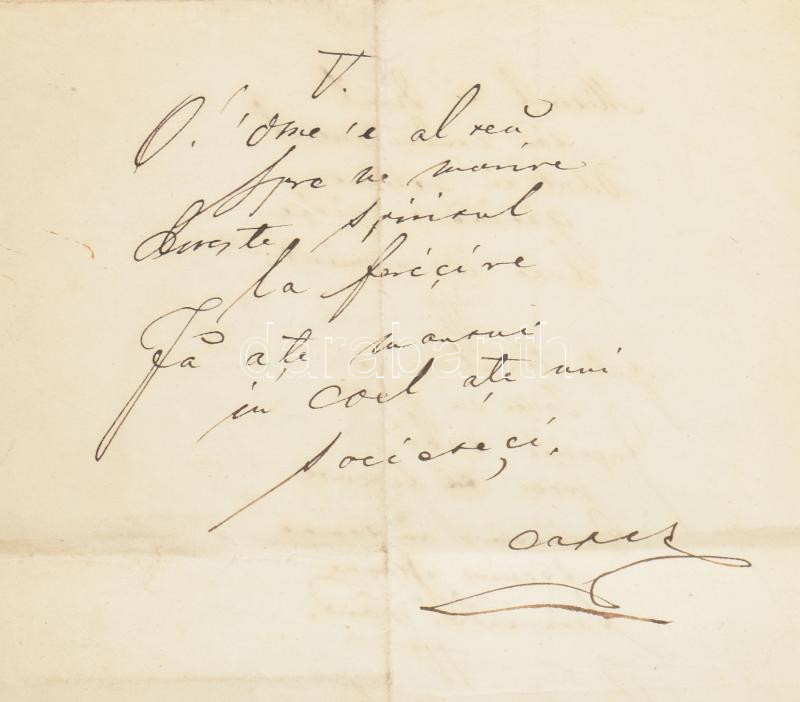 V.
O! ome 'e al reŭ
Spre ne morire
Areste spiritul
la fericire
Fă ațe
in coel ațe uni
societeți.
darabanth